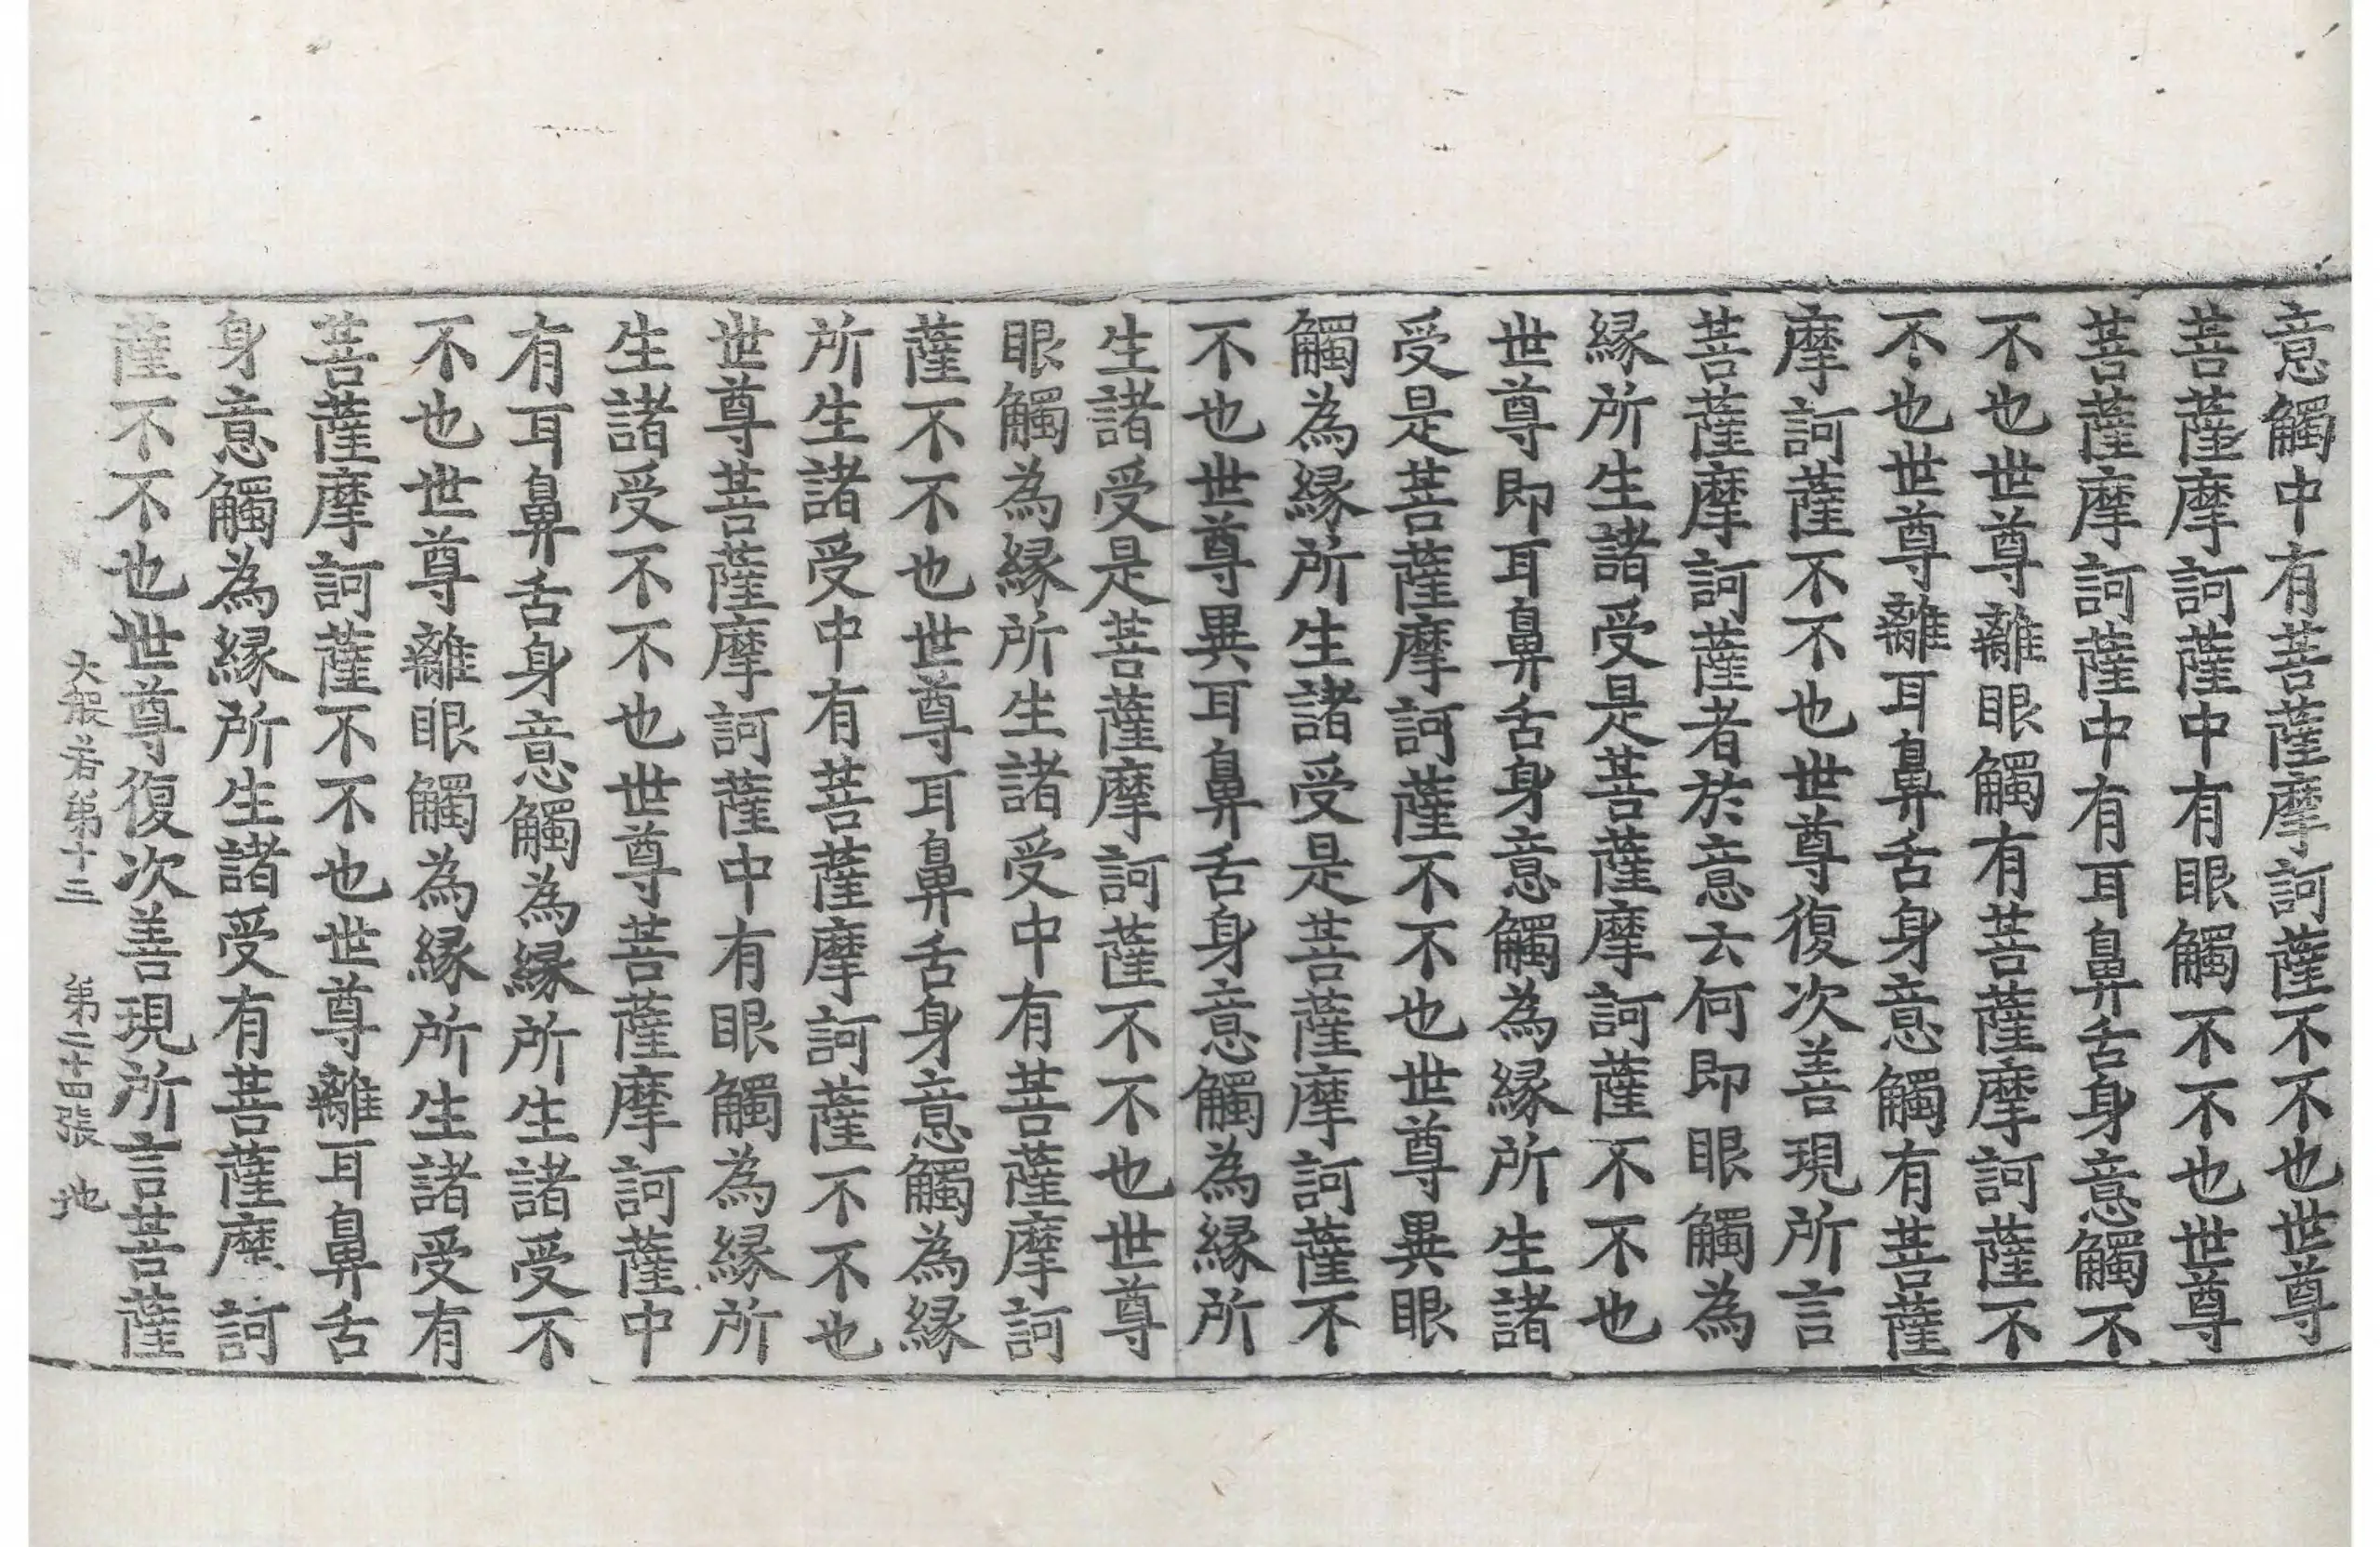 意觸中有菩薩摩訶薩不不也世尊
菩薩摩訶薩中有眼觸不不也世尊
菩薩摩訶薩中有耳鼻舌身意觸不
不也世尊離眼觸有菩薩摩訶薩不
不也世尊離耳鼻舌身意觸有菩薩
摩訶薩不不也世尊復次善現所言
菩薩摩訶薩者於意云何即眼觸為
緣所生諸受是菩薩摩訶薩不不也
世尊即耳鼻舌身意觸為緣所生諸
受是菩薩摩訶薩不不也世尊異眼
觸為緣所生諸受是菩薩摩訶薩不
不也世尊異耳鼻舌身意觸為緣所
生諸受是菩薩摩訶薩不不也世尊
眼觸為緣所生諸受中有菩薩摩訶
薩不不也世尊耳鼻舌身意觸為緣
所生諸受中有菩薩摩訶薩不不也
世尊菩薩摩訶薩中有眼觸為緣所
生諸受不不也世尊菩薩摩訶薩中
有耳鼻舌身意觸為緣所生諸受不
不也世尊離眼觸為緣所生諸受有
菩薩摩訶薩不不也世尊離耳鼻舌
身意觸為緣所生諸受有菩薩摩訶
薩不不也世尊復次善現所言菩薩
大般若第十三 第二十四張 地